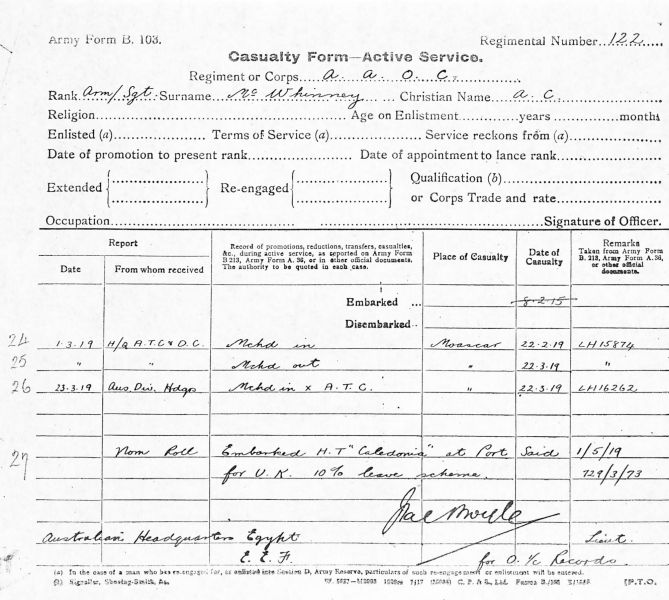 Army Form B. 103. Regimental Number...122
Casualty Form—Active Service.
Regiment or Corps A. A. O. C.
Rank Arm/Sgt. Surname Mc Whinney Christian Name A. C.
Religion Age on Enlistment years months
Enlisted (a) Terms of Service (a) Service reckons from (a)
Date of promotion to present rank Date of appointment to lance rank
Extended Re-engaged Qualification (b)
or Corps Trade and rate
Occupation Signature of Officer.
Report Record of promotions, reductions, transfers, casualties, &c., during active service, as reported on Army Form B 213, Army Form A. 36, or in other official documents. The authority to be quoted in each case. Place of Casualty Date of Casualty Remarks Taken from Army Form B. 213, Army Form A. 36, or other official documents.
Date From whom received
Embarked ... 8-2-15
Disembarked
24 1.3.19 H/Q A.T.C & D.C. Mchd in Moascar 22.2.19 LH15874
25 " " Mchd out " 22.3.19 "
26 23.3.19 Aus. Div. Hdqs Mchd in x A.T.C. " 22.3.19 LH16262
27 Nom Roll Embarked H.T "Caledonia" at Port Said 1/5/19
for U.K. 10% leave scheme. 729/3/73
Australian Headquarters Egypt Lieut.
E.E.F. for O. i/c Records.
(a) In the case of a man who has re-engaged for, or enlisted into Section D, Army Reserve, particulars of such re-engagement or enlistment will be entered.
(b) Signaller, Shoeing-Smith, &c. [P.T.O.